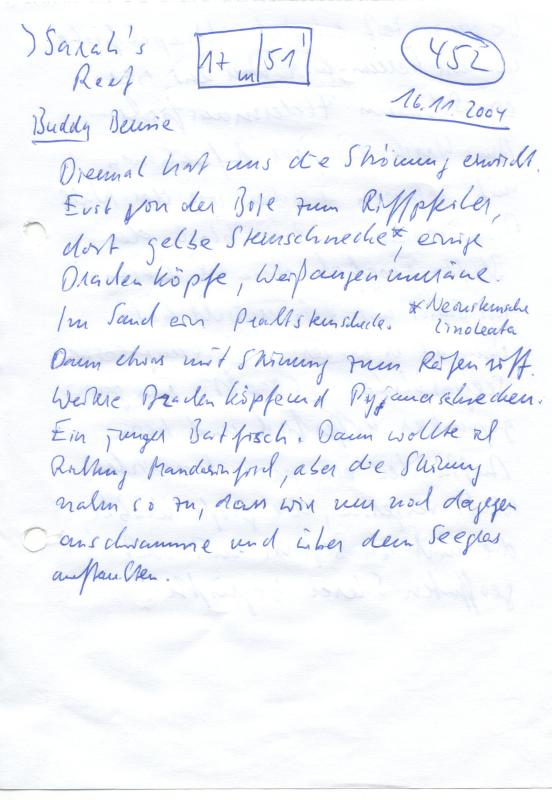 Sarah's
Reef
17 m 51'
452
16.11.2004
Buddy Bennie
Diesmal hat uns die Strömung erwischt.
Erst von der Boje zum Riffpfeiler,
dort gelbe Sternschnecke*, einige
Drachenköpfe, Weißaugenmuräne.
Im Sand ein Prachtsternschnecke.
*Neon
lineata
Dann etwas mit Strömung zum Reifenriff.
Weitere Drachenköpfe und Pyjamaschnecken.
Ein junger Batfisch. Dann wollte ich
Richtung Mandarinfisch, aber die Strömung
nahm so zu, dass wir nur noch dagegen
anschwamme und über dem Seegras
auftauchten.